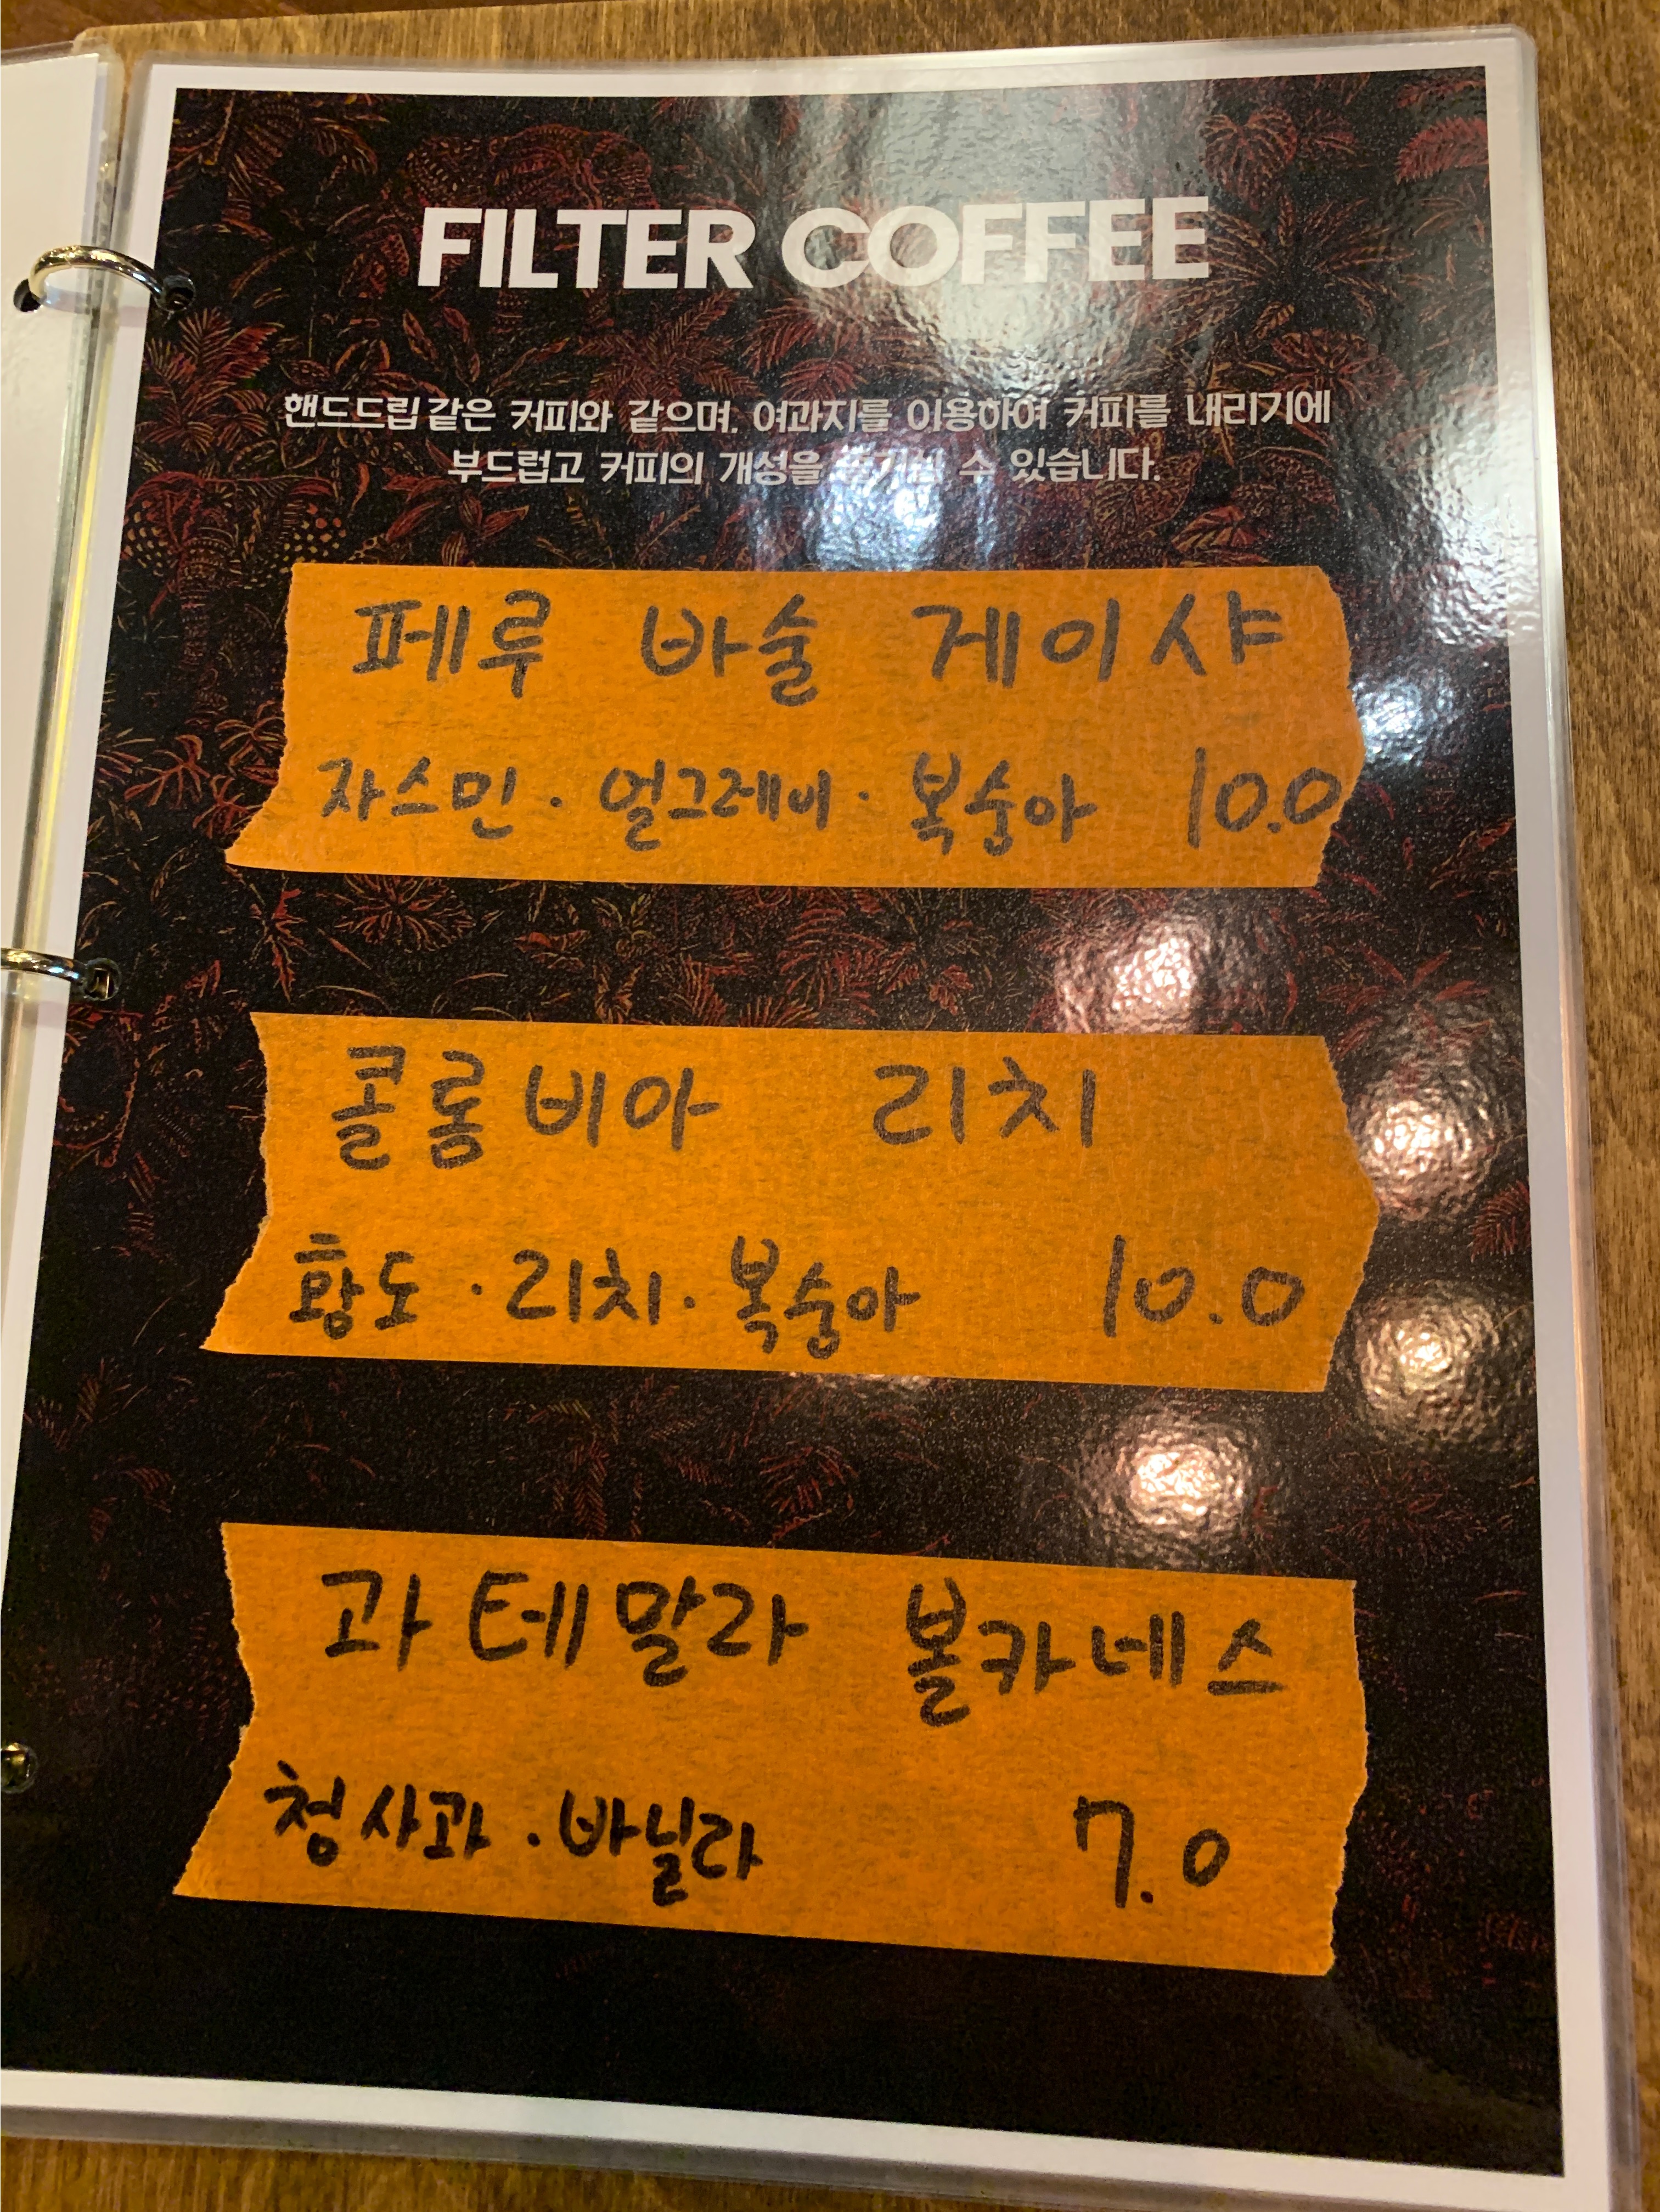 FILTER COFFEE
핸드드립 같은 커피와 같으며, 여과지를 이용하여 커피를 내리기에
부드럽고 커피의 개성을 수 있습니다.
페루 바술 게이샤
자스민 · 얼그레이 · 복숭아 10.0
콜롬비아 리치
황도 · 리치 · 복숭아 10.0
과테말라 볼카네스
청사과 · 바닐라 7.0